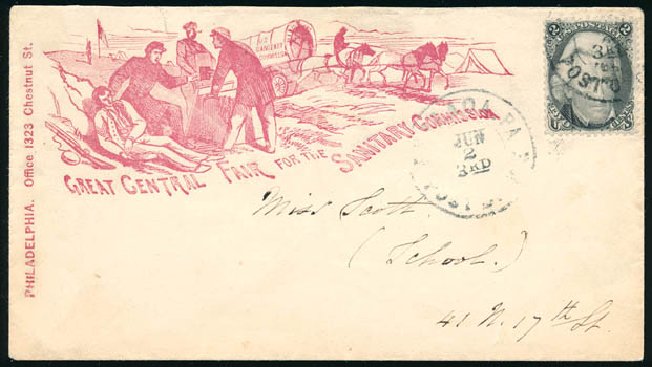 PHILADELPHIA. Office 1323 Chestnut St.
U.S. SANITARY COMMISSION
GREAT CENTRAL FAIR FOR THE SANITARY COMMISSION
2 2
JUN
2
3RD
POST
POST O
Miss Scott.
(School.)
41 N. 17th St.